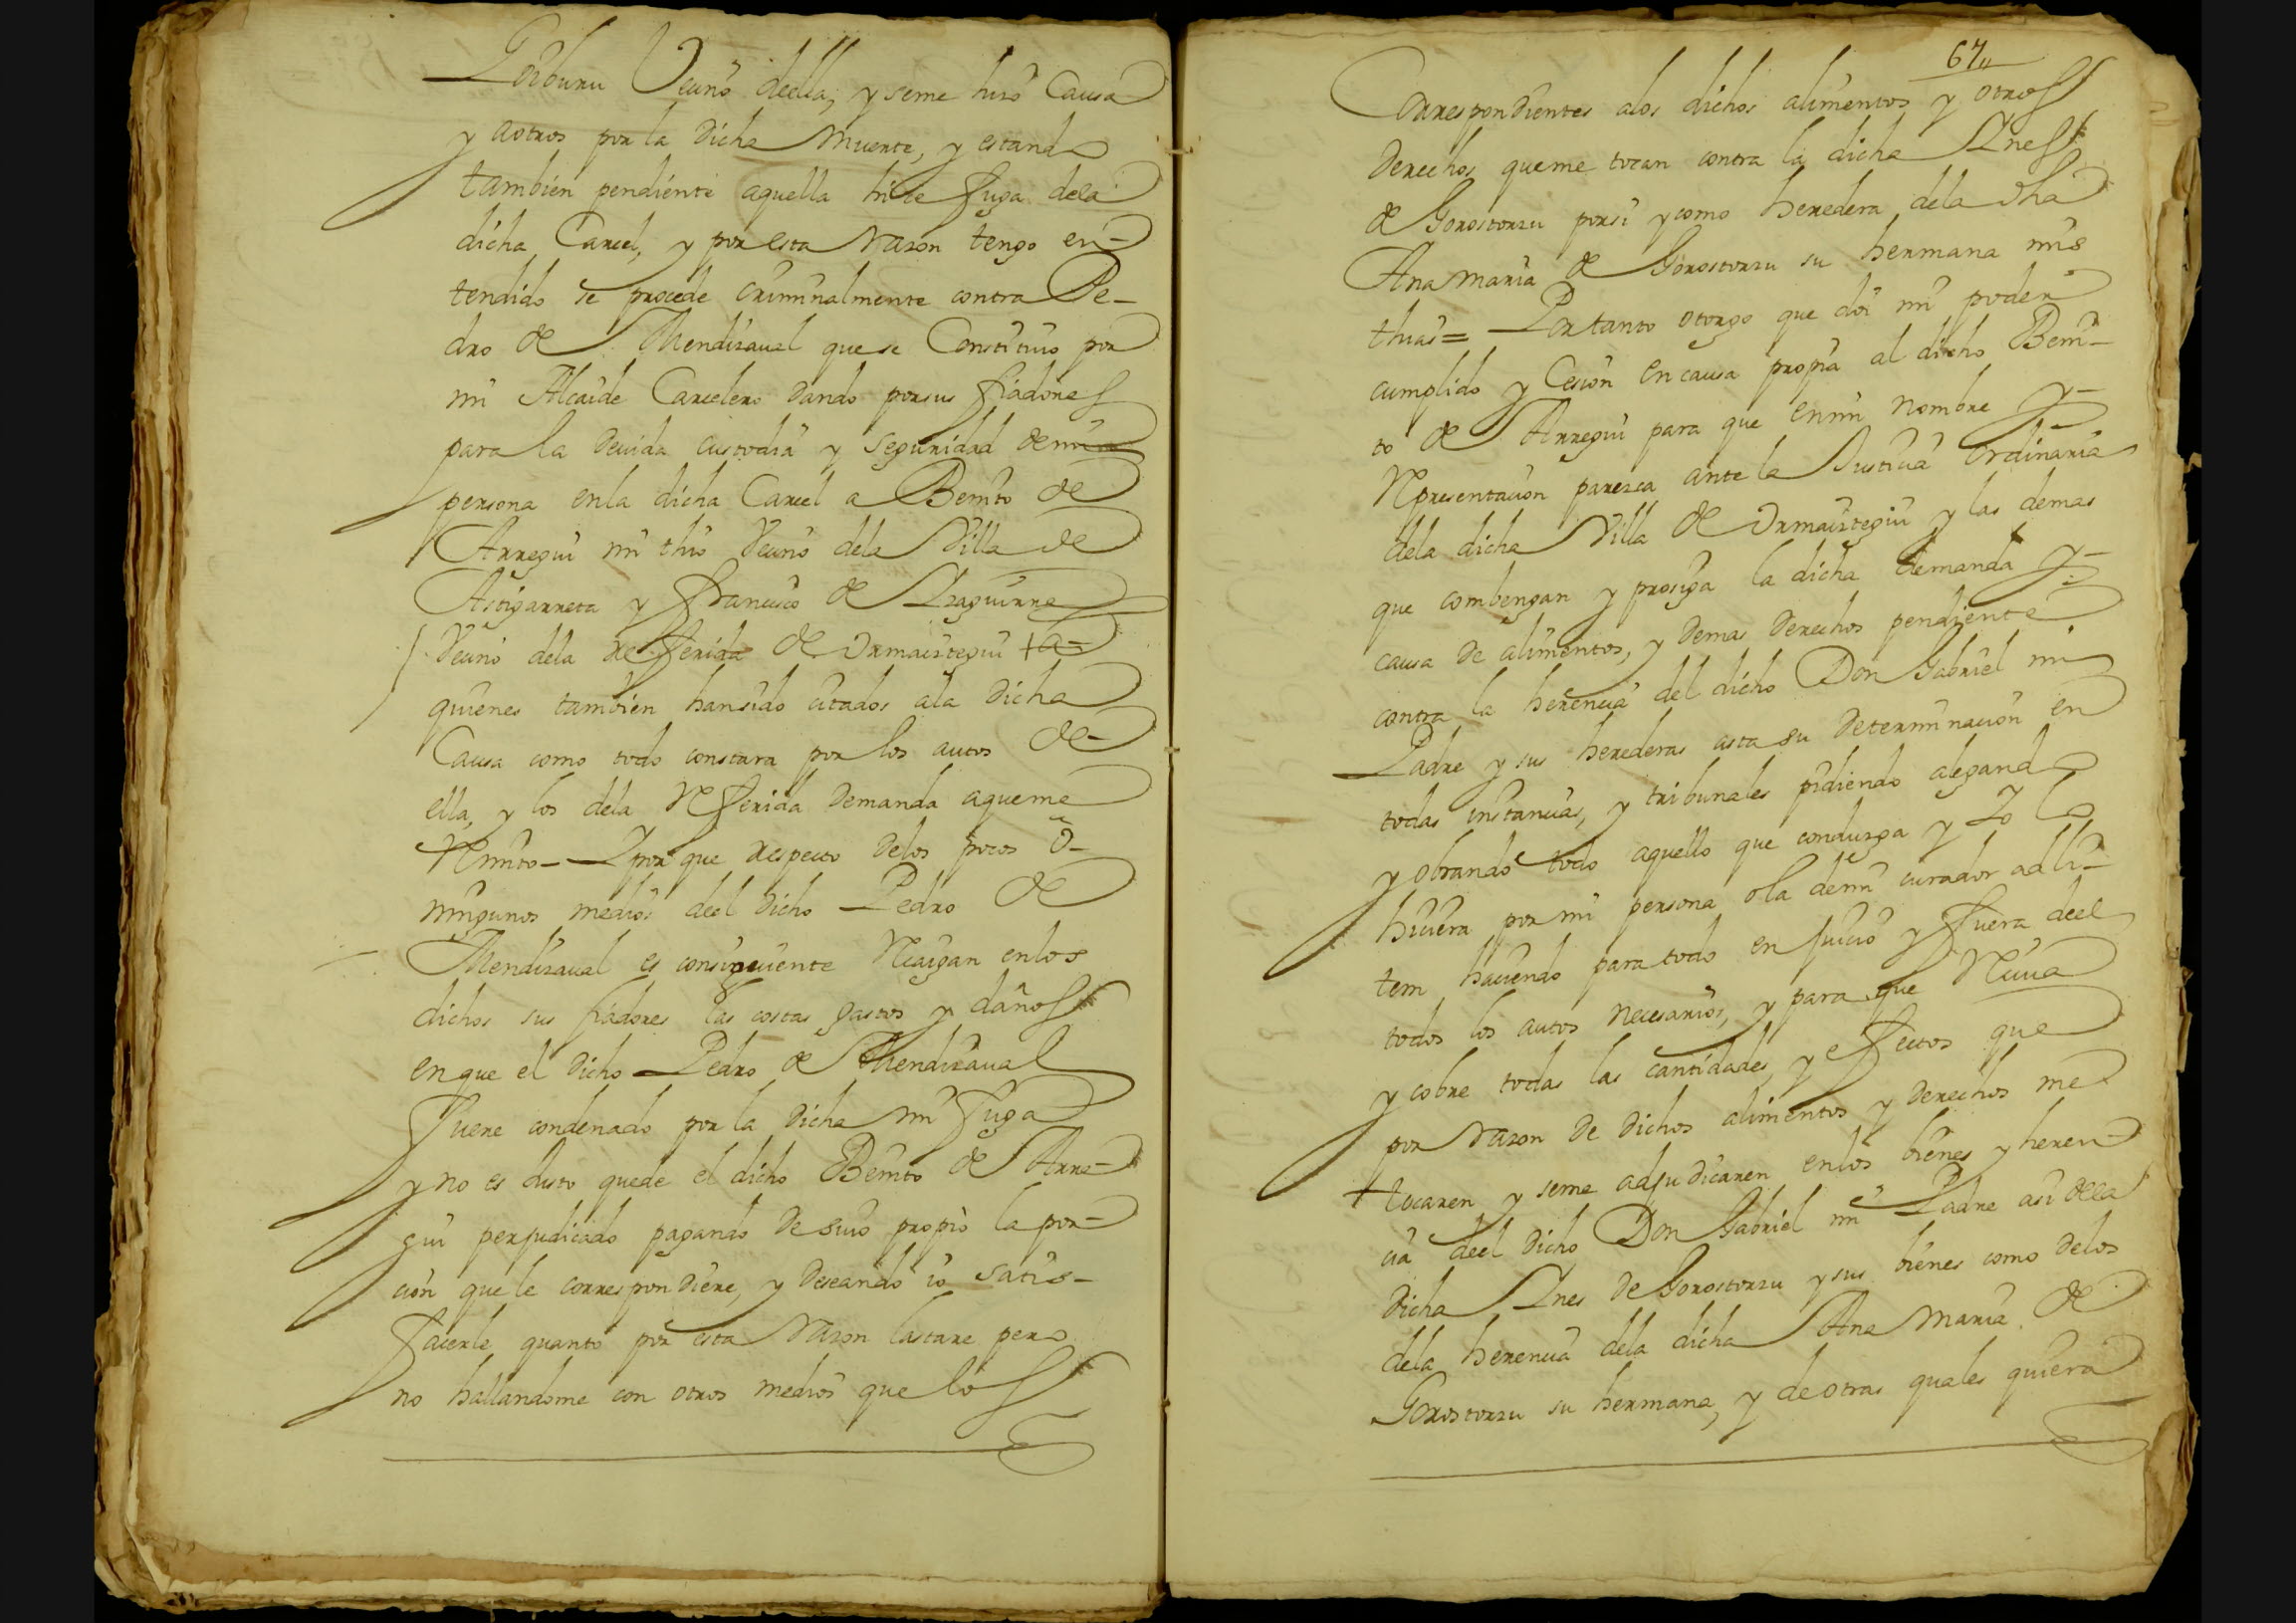 Loiburu Vecino deella, y seme hizo Causa
y aotros por la dicha Muerte, y estando
tambien pendiente aquella hize fuga dela
dicha Carcel, y por esta Razon tengo en-
tendido se procede criminalmente contra Pe-
dro de Mendizaval que se Constituio por
mi Alcaide Carcelero dando porsus fiadores
para la devida custodia y seguridad demi
persona enla dicha Carcel a Benito de
Arregui mi thio Vecino dela Villa de
Astigarreta y francisco de Izaguirre
Vecino dela referida de Ormaiztegui + a=
quienes tambien hansido citados ala dicha
Causa como todo constara por los autos de-
ella, y los dela Referida demanda aqueme
Remito- Y por que respecto delos pocos o-
ningunos medios deel dicho Pedro de
Mendizaval es consiguiente Recaigan enlos
dichos sus fiadores las costas gastos y daños
enque el dicho Pedro de Mendizaval
fuere condenado por la dicha mi fuga
y no es Justo quede el dicho Benito de Arre=
gui perjudicado pagando de suio propio la por=
cion que le correspondiere, y deseando io satis-
facerle quanto por esta Razon lastare pero
no hallandome con otros medios que los
67
Correspondientes alos dichos alimentos y otros
derechos queme tocan contra la dicha Ines
de Gorostorzu porsi ycomo heredera dela dha
Ana maria de Gorostorzu su hermana mis
thias= Por tanto otorgo que doi mi poder
cumplido y Cesion encausa propia al dicho Beni-
to de Arregui para que enmi nombre y-
Representacion paresca ante la Justicia ordinaria
dela dicha Villa de Ormaiztegui y las demas
que combengan y prosiga la dicha demanda y-
causa de alimentos, y demas derechos pendiente
contra la herencia del dicho Don Gabriel mi
Padre y sus herederas asta su determinacion en
todas instancias, y tribunales pidiendo alegando
y obrando todo aquello que conduzga y Io lo
hiciera por mi persona o la demi curador adli-
tem haciendo para todo en juicio y fuera deel
todos los autos necesarios, y para que Reciva
y cobre todas las cantidades, y efectos que
por Razon de dichos alimentos y derechos me
+ tocaren y seme adjudicaren enlos bienes y heren-
cia deel dicho Don Gabriel mi Padre asi dela
dicha Ines de Gorostorzu ysus bienes como delos
dela herencia dela dicha Ana Maria de
Gorostorzu su hermana, y de otras quales quiera